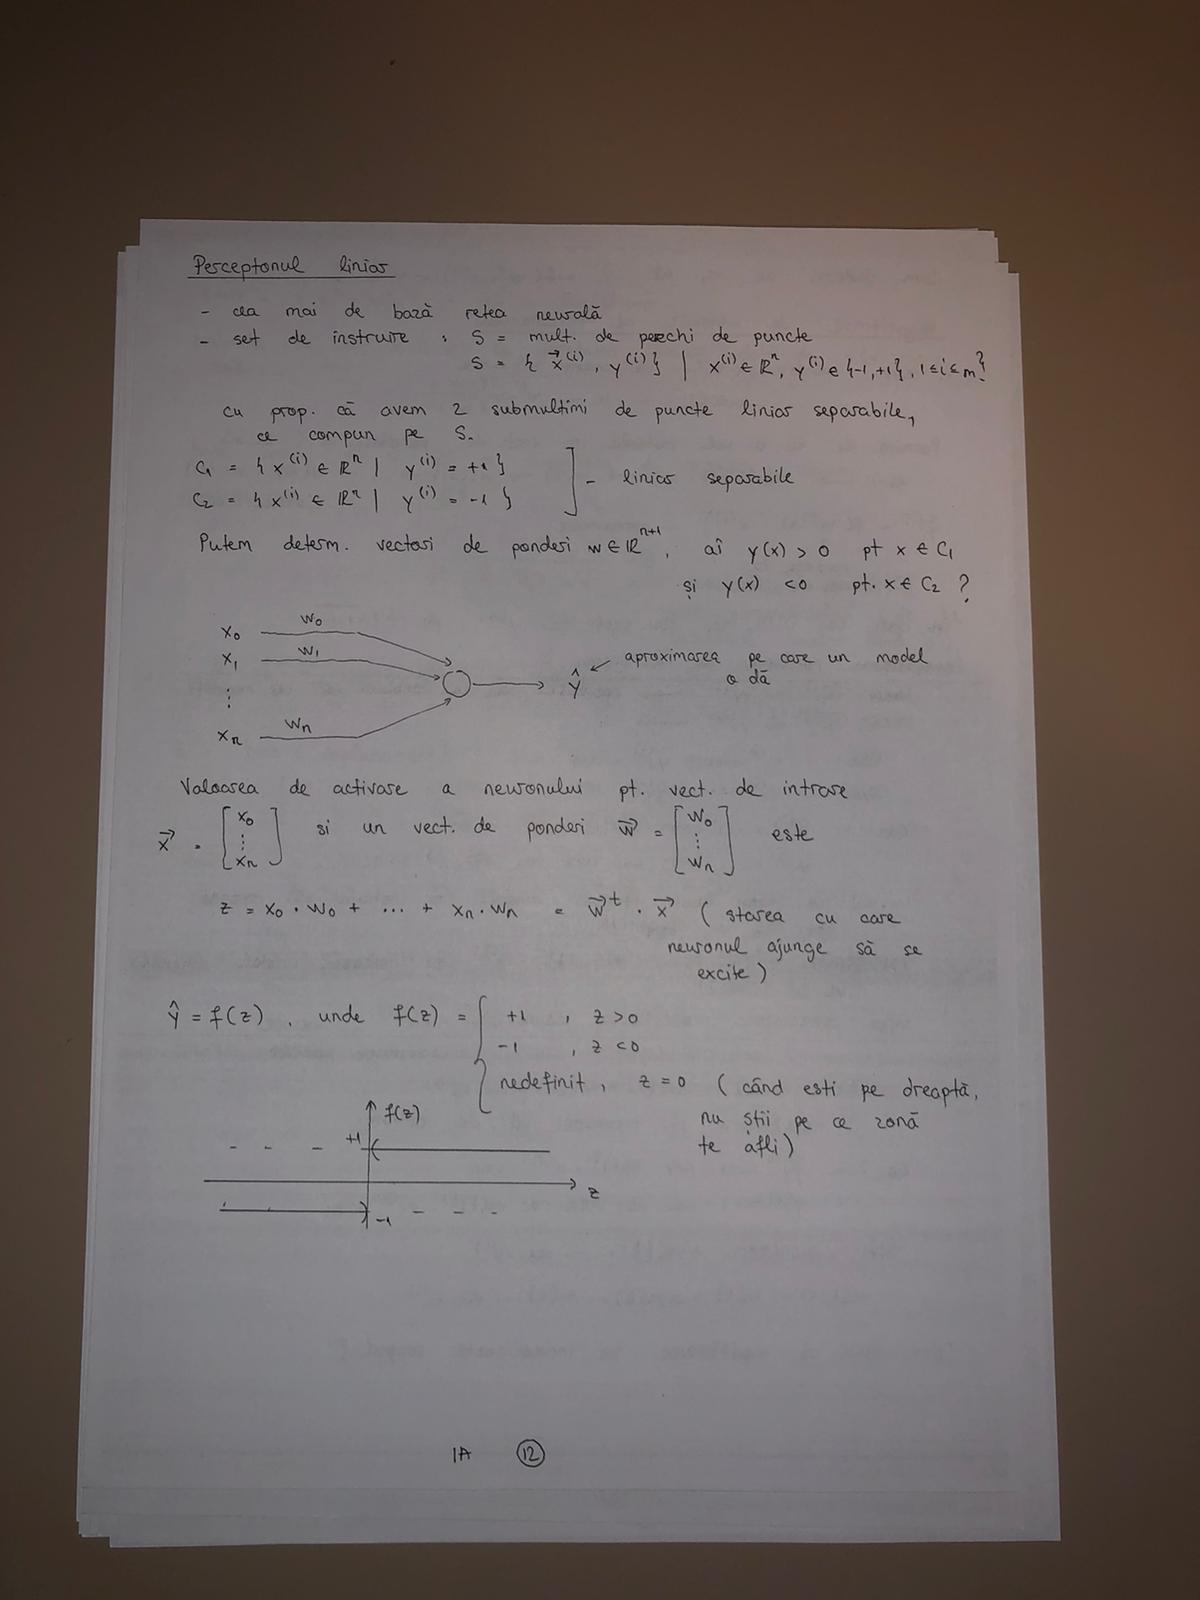 Perceptonul liniar
- cea mai de bază retea neurală
- set de instruire : S = mult. de perechi de puncte
S = { x⃗⁽ⁱ⁾, y⁽ⁱ⁾} | x⁽ⁱ⁾ ∈ ℝⁿ, y⁽ⁱ⁾ ∈ {-1,+1}, 1≤i≤m}
cu prop. că avem 2 submultimi de puncte liniar separabile,
ce compun pe S.
C₁ = { x⁽ⁱ⁾ ∈ ℝⁿ | y⁽ⁱ⁾ = +1 }
C₂ = { x⁽ⁱ⁾ ∈ ℝⁿ | y⁽ⁱ⁾ = -1 }
- liniar separabile
Putem determ. vectori de ponderi w ∈ ℝⁿ⁺¹, aî y(x) > 0 pt x ∈ C₁
și y(x) < 0 pt. x ∈ C₂ ?
x₀ w₀
x₁ w₁
⋮
xₙ wₙ
ŷ ← aproximarea pe care un model
o dă
Valoarea de activare a neuronului pt. vect. de intrare
x⃗ = [x₀ ⋮ xₙ] si un vect. de ponderi w⃗ = [w₀ ⋮ wₙ] este
z = x₀ · w₀ + ... + xₙ · wₙ = w⃗ᵗ · x⃗ (starea cu care
neuronul ajunge să se
excite)
ŷ = f(z), unde f(z) = { +1 , z > 0
-1 , z < 0
nedefinit, z = 0 (când esti pe dreaptă,
nu știi pe ce zonă
te afli)
f(z)
+1
z
-1
IA 12